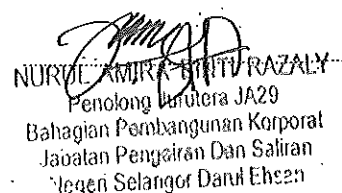 NURUL AMIRA BINTI RAZALY
Penolong Jurutera JA29
Bahagian Pembangunan Korporat
Jabatan Pengairan Dan Saliran
Negeri Selangor Darul Ehsan